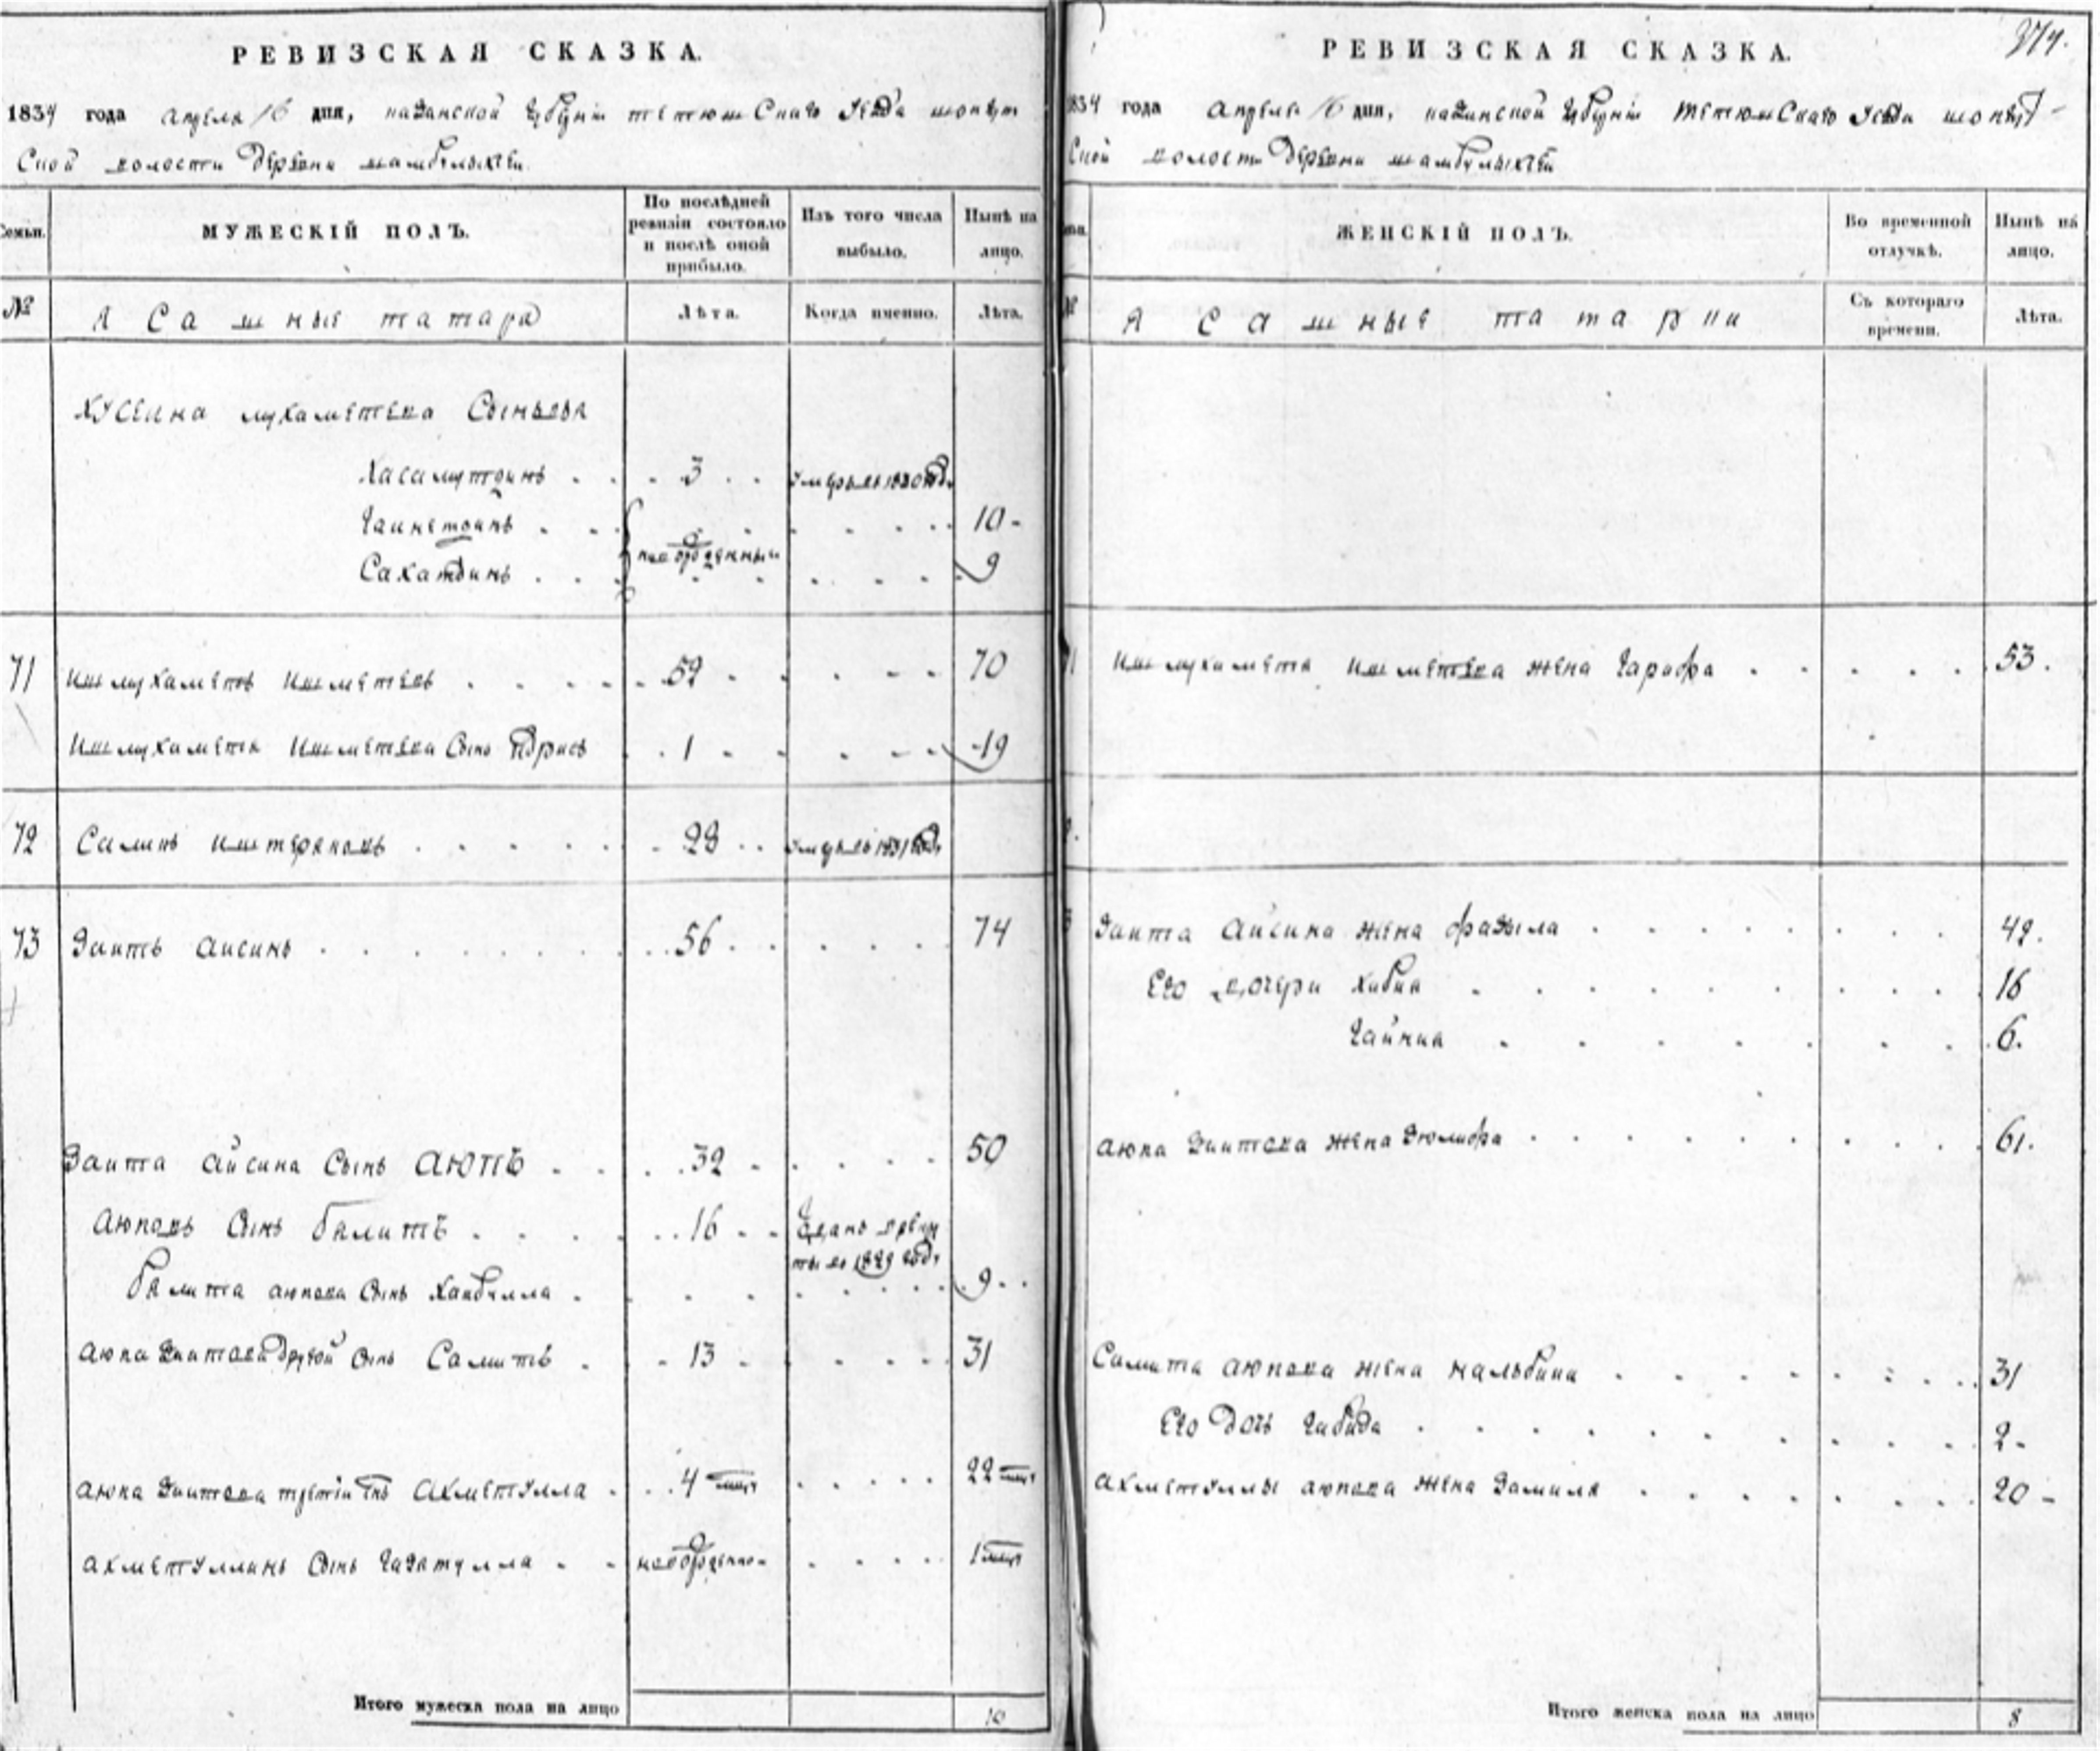 РЕВИЗСКАЯ СКАЗКА.
1834 года апреля 16 дня, казанской губернiи тетюшскаго уезда шонгут
ской волости деревни шамбулыхчеи
Семьи.
МУЖЕСКIЙ ПОЛЪ.
По послѣдней ревизiи состояло и послѣ оной прибыло.
Изъ того числа выбыло.
Нынѣ на лицо.
№
Ясашныя татара
Лѣта.
Когда именно.
Лѣта.
Хусеина мухаметева сыновья
Хасамутдинъ 3 умеръ въ 1820 году
Гаинетдинъ 10
новорожденныи
Сахатдинъ 9
71 ишмухаметъ ишметевъ 52 70
ишмухаметя ишметева сынъ идрисъ 1 19
72 Салимъ иштеряковъ 28 умеръ въ 1831 году
73 Заитъ аисинъ 56 74
Заита айсина сынъ аюпъ 32 50
аюповъ сынъ балитъ 16 зданъ врекру
ты в 1829 году
балита аюпова сынъ хаибулла 9
аюпа заитова другой сынъ Самитъ 13 31
аюпа заитова третiи сынъ ахметулла 4 22
ахметуллинъ сынъ газатулла новорожденно 1
Итого мужеска пола на лицо 10
РЕВИЗСКАЯ СКАЗКА.
374.
1834 года апреля 16 дня, казанской губернiи тетюшскаго уезда шонгут-
ской волости деревни шамбулыхчеи
ЖЕНСКIЙ ПОЛЪ.
Во временной отлучкѣ.
Нынѣ на лицо.
№
Ясашныя татарки
Съ котораго времени.
Лѣта.
71 ишмухаметя ишметева жена гарифа 53.
2.
3 Заита айсина жена фазыла 42.
Его дочери хибиа 16
гайниа 6.
аюпа заитова жена зюлифа 61.
Самита аюпова жена мальбика 31
Его дочь габида 2
ахметуллы аюпова жена замиля 20
Итого женска пола на лицо 8